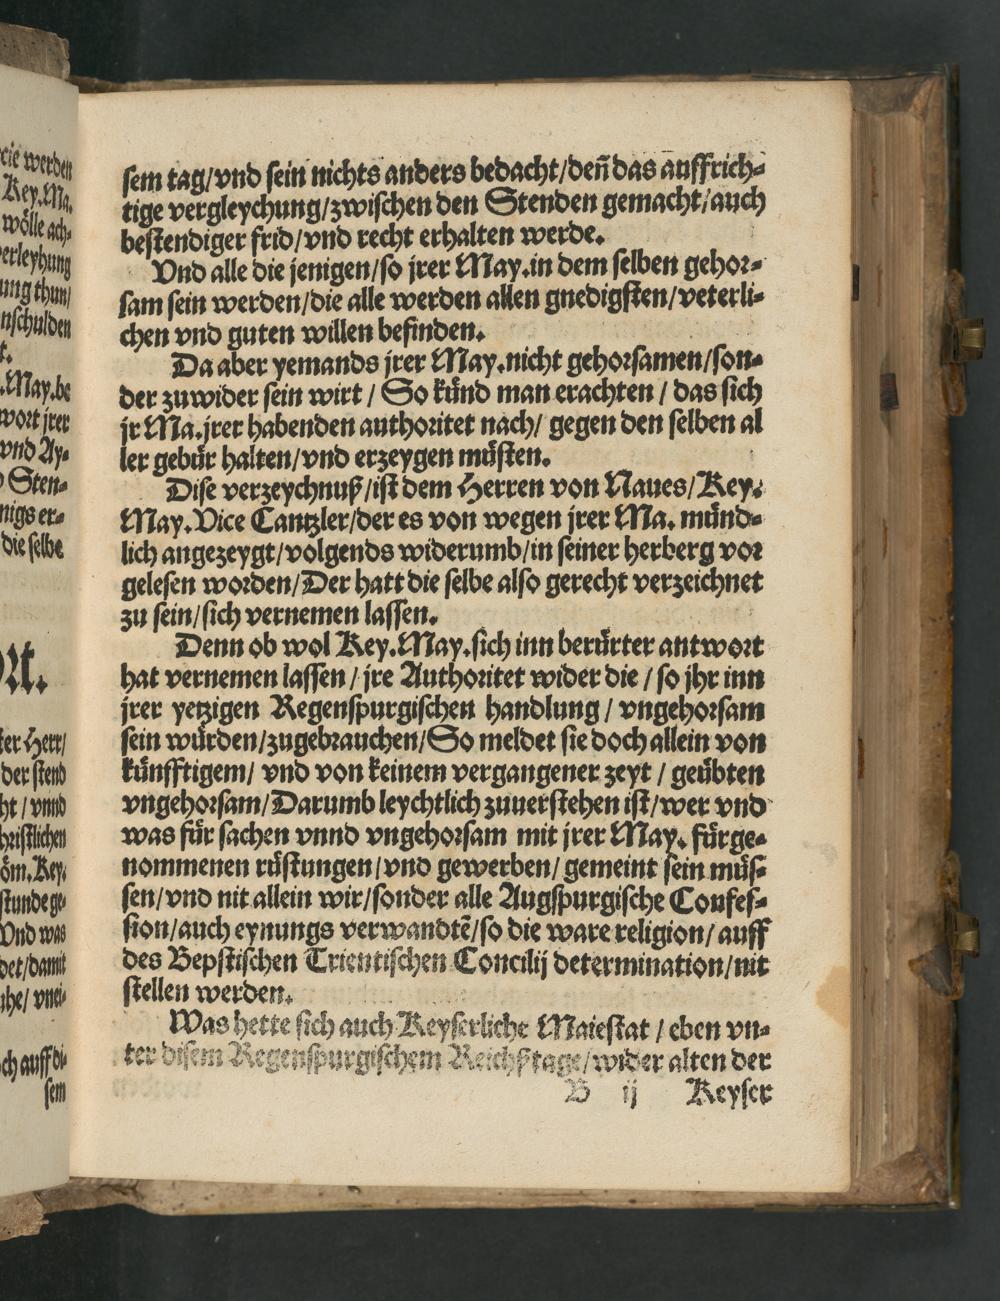 cie werden
Key.Ma.
wölle ach-
erleyhung
ung thun/
nschulden
t.
.May.be
wort jrer
vnd Ay-
Sten-
nigs er-
die selbe
rt.
ter Herr/
der stend
ht / vnnd
hristlichen
öm.Key.
stunde ge-
Vnd was
det/damit
uhe/ vnei-
ch auff di-
sem
sem tag/vnd sein nichts anders bedacht/deñ das auffrich-
tige vergleychung/zwischen den Stenden gemacht/auch
bestendiger frid/vnd recht erhalten werde.
Vnd alle die jenigen/so jrer May.in dem selben gehor-
sam sein werden/die alle werden allen gnedigsten/veterli-
chen vnd guten willen befinden.
Da aber yemands jrer May.nicht gehorsamen/son-
der zuwider sein wirt / So künd man erachten / das sich
jr Ma.jrer habenden authoritet nach/ gegen den selben al
ler gebür halten/vnd erzeygen müsten.
Dise verzeychnuß/ist dem Herren von Naues/Key.
May.Vice Cantzler/der es von wegen jrer Ma. münd-
lich angezeygt/volgends widerumb/in seiner herberg vor
gelesen worden/Der hatt die selbe also gerecht verzeichnet
zu sein/sich vernemen lassen.
Denn ob wol Key.May.sich inn berürter antwort
hat vernemen lassen / jre Authoritet wider die / so jhr inn
jrer yetzigen Regenspurgischen handlung / vngehorsam
sein würden/zugebrauchen/So meldet sie doch allein von
künfftigem/ vnd von keinem vergangener zeyt / geübten
vngehorsam/Darumb leychtlich zuuerstehen ist/wer vnd
was für sachen vnnd vngehorsam mit jrer May. fürge-
nommenen rüstungen/vnd gewerben/ gemeint sein müs-
sen/vnd nit allein wir/sonder alle Augspurgische Confes-
sion/auch eynungs verwandtẽ/so die ware religion/ auff
des Bepstischen Trientischen Concilij determination/nit
stellen werden.
Was hette sich auch Keyserliche Maiestat / eben vn-
ter disem Regenspurgischem Reichßtage/wider alten der
B ij Keyser